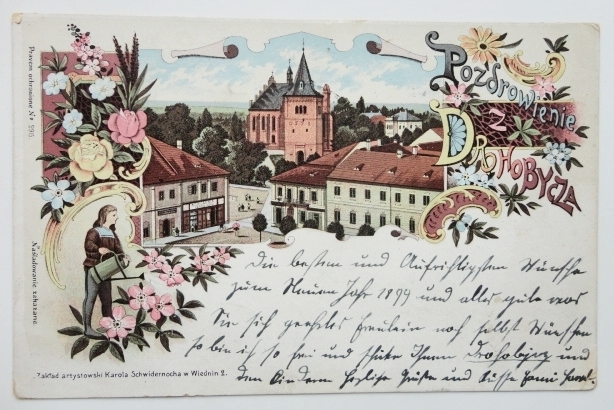 Pozdrowienie
z
DROHOBYCZA
Prawem ochronione No
Naśladowanie zakazane.
Die besten und Aufrichtigsten Wünsche
zum Neuen Jahr 1899 und alles gute was
Sie sich geehrtes Fräulein noch selbst Wünschen
so bin ich so frei und schicke Ihnen Drohobycz und
den Kinderen herzliche Grüsse und Küsse
Zakład artystowski Karola Schwidernocha w Wiedniu 2.